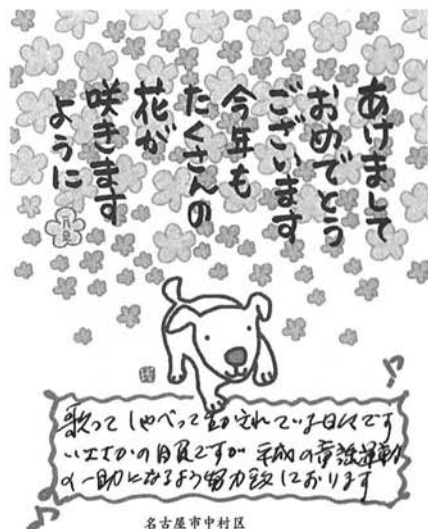 あけまして
おめでとう
ございます
今年も
たくさんの
花が
咲きます
ように
歌って しゃべって 生かされている日々です
いささかの自負ですが 平成の童謡運動
の一助になるよう努力致しております
名古屋市中村区